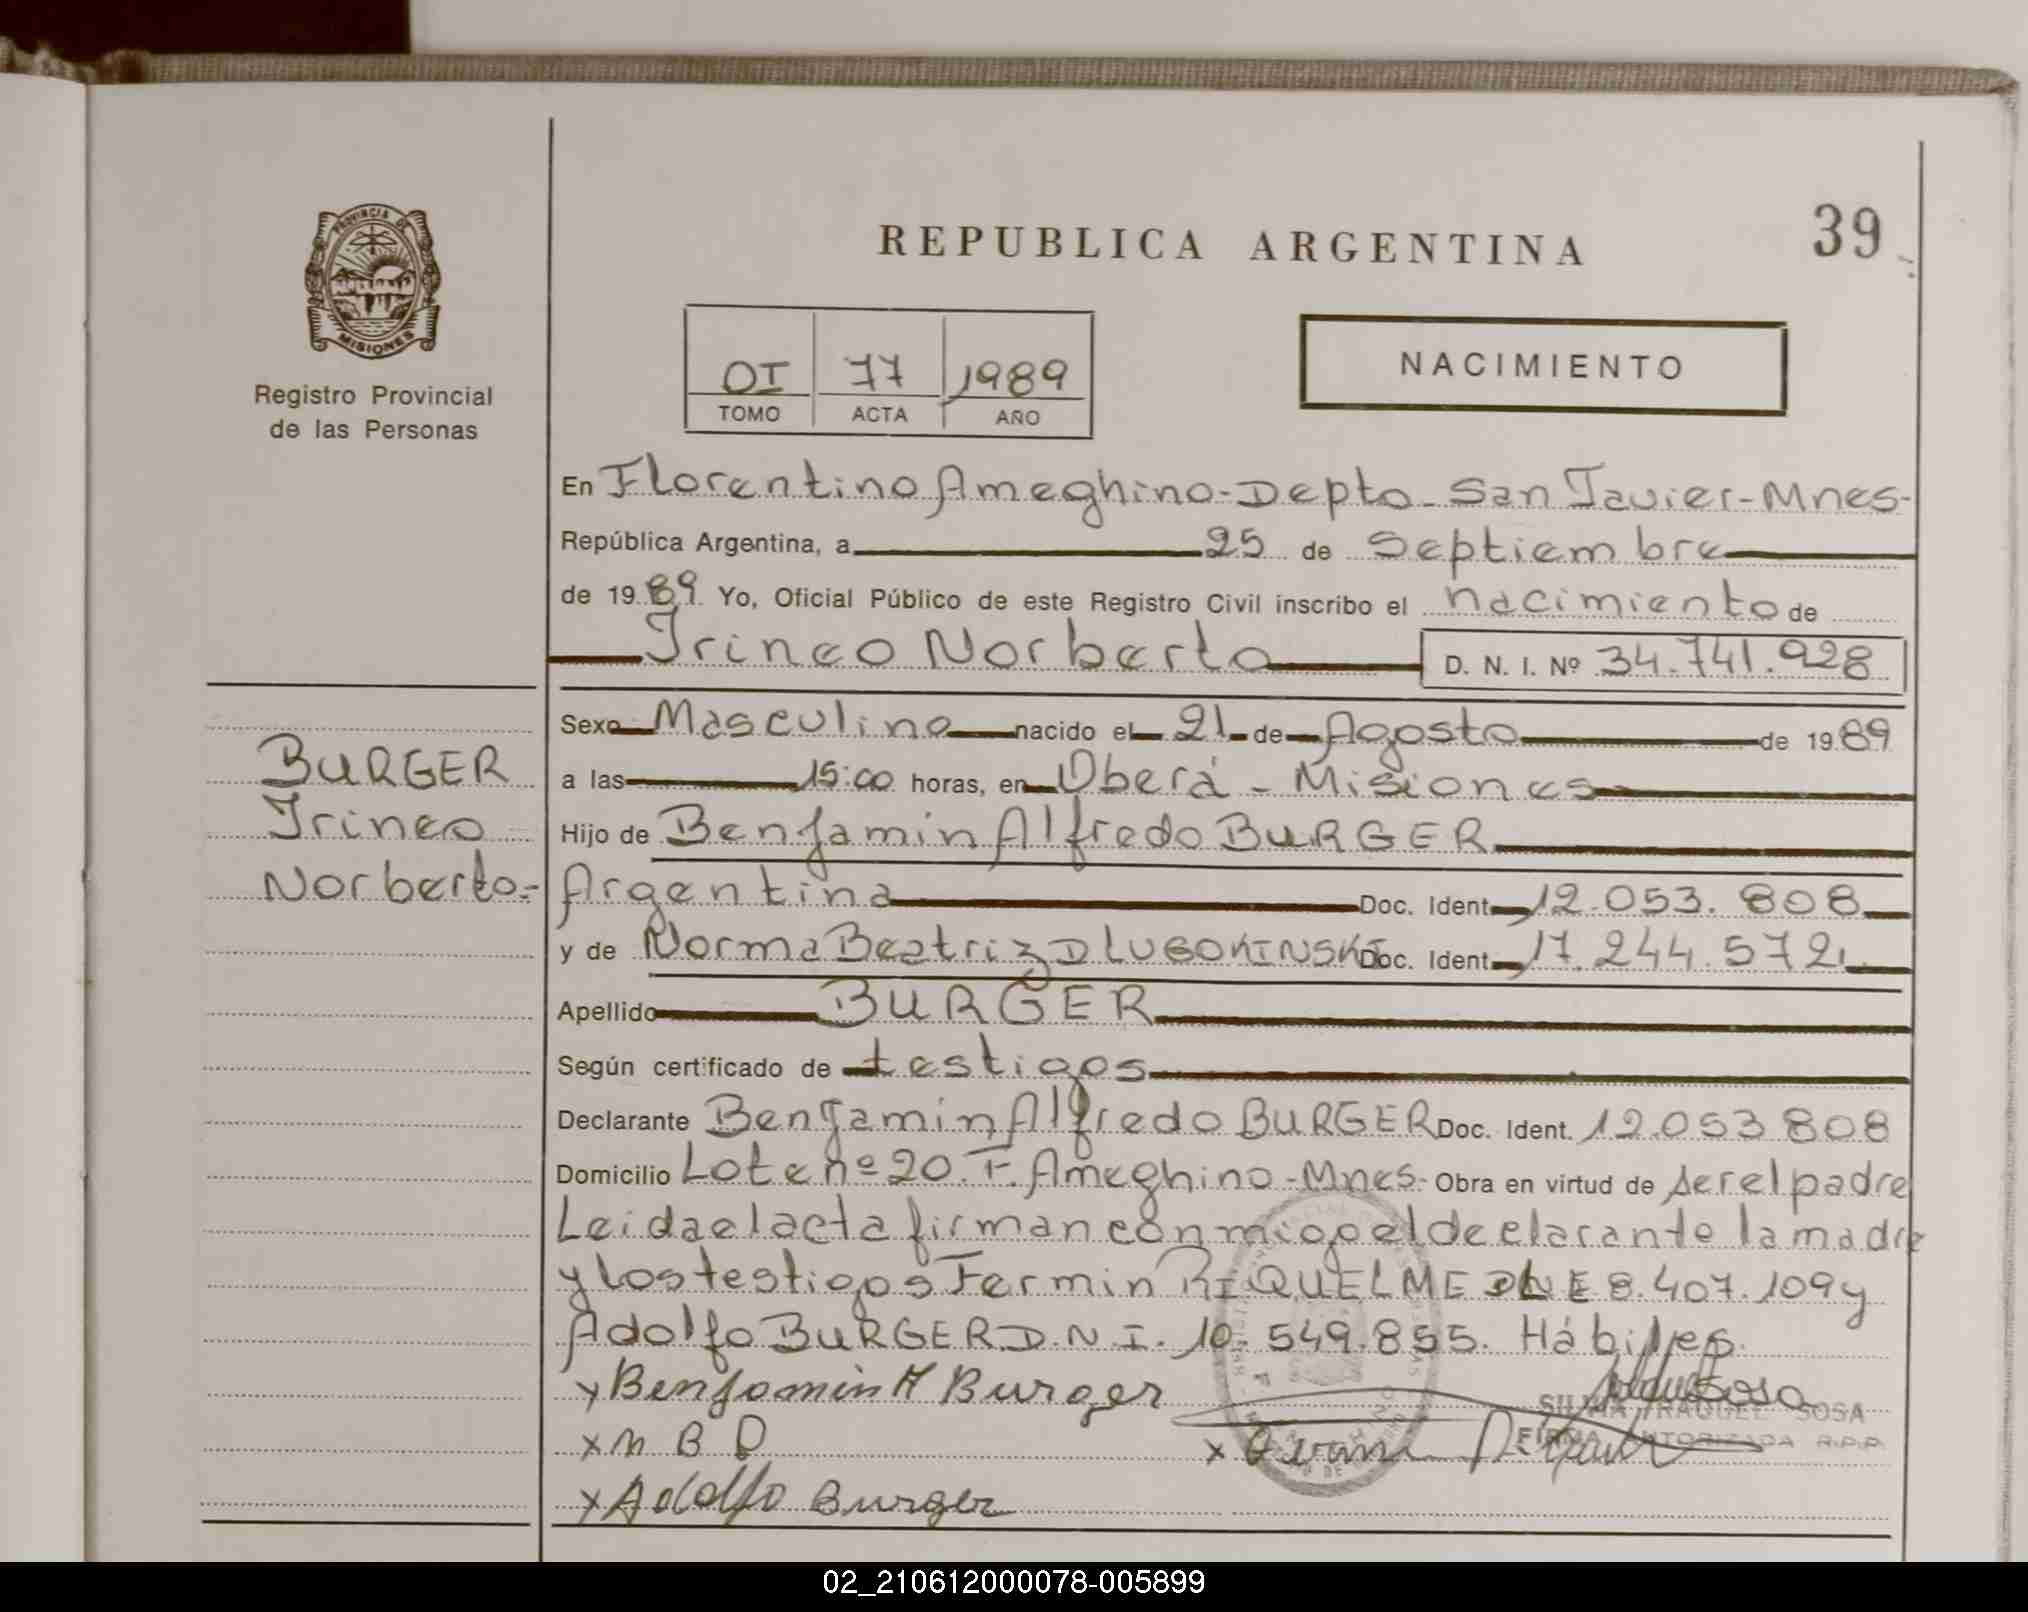 39
REPUBLICA ARGENTINA
PROVINCIA DE
MISIONES
Registro Provincial
de las Personas
OI 77 1989
TOMO ACTA AÑO
NACIMIENTO
En Florentino Ameghino-Depto-San Javier-Mnes-
República Argentina, a 25 de Septiembre
de 1989 Yo, Oficial Público de este Registro Civil inscribo el nacimiento de
Irineo Norberto D. N. I. Nº 34.741.928
BURGER
Irineo
Norberto.-
Sexo Masculino nacido el 21 de Agosto de 1989
a las 15:00 horas, en Oberá - Misiones
Hijo de Benjamin Alfredo BURGER
Argentina Doc. Ident. 12.053.808
y de Norma Beatriz DLUGOKINSKI Doc. Ident. 17.244.572
Apellido BURGER
Según certificado de testigos
Declarante Benjamin Alfredo BURGER Doc. Ident. 12.053.808
Domicilio Lote nº 20. F. Ameghino-Mnes- Obra en virtud de ser el padre
Leida el acta firman conmigo el declarante la madre
y los testigos Fermin RIQUELME DNE 8.407.109 y
Adolfo BURGER D.N.I. 10.549.855. Hábiles.
x Benjamin A Burger
SILVIA RAQUEL SOSA
FIRMA AUTORIZADA R.P.P.
x N B D
x
x Adolfo Burger
02_210612000078-005899